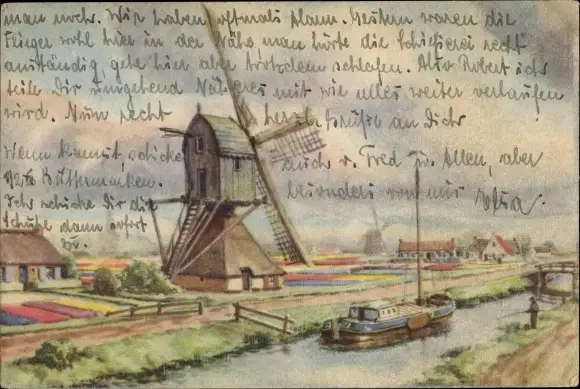 man mehr. Wir haben oftmals Alarm. Gestern waren die
Flieger wohl hier in der Nähe, man hörte die Schießerei recht
anständig, gehe hier aber trotzdem schlafen. Also Robert ich
teile Dir umgehend Näheres mit wie alles weiter verlaufen
wird. Nun recht herzl. Grüße an Dich
Wenn kannst, schicke auch v. Fred u. Allen, aber
Buttermarken. besonders von mir
Ich schicke Dir die Elsa.
Schuhe dann sofort
zu.